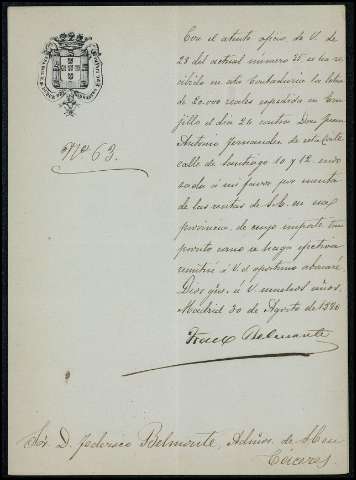 Nº 63.
Con el atento oficio de V. de
23 del actual número 25 se ha re-
cibido en esta Contaduría la letra
de 20.000 reales espedida en Tru-
jillo el día 21 contra Don Juan
Antonio Fernandez de esta Corte
calle de Santiago 10 y 12 endo-
sada á mi favor por cuenta
de las rentas de S.E. en esa
provincia, de cuyo importe tan
pronto como se haga efectiva
remitiré á V. el oportuno abonaré.
Dios gue. á V. muchos años.
Madrid 30 de Agosto de
Franco Belmonte
Sor. D. Federico Belmonte, Admor. de S.E. en
Cáceres